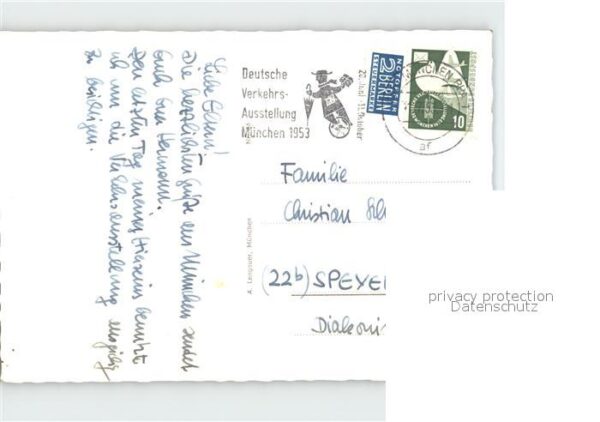 Liebe
Die herzlichsten Grüße aus München sendet
Euch Hermann.
Den letzten Tag meines Hierseins benutzte
ich um die Verkehrsausstellung
zu besichtigen.
Deutsche
Verkehrs-
Ausstellung
München 1953
20. Juni - 11. Oktober
NOTOPFER
2 BERLIN
STEUERMARKE
MÜNCHEN
af
10
Familie
Christian
(22b) SPEYE
Diakoni
A. Lengauer, München
privacy protection
Datenschutz